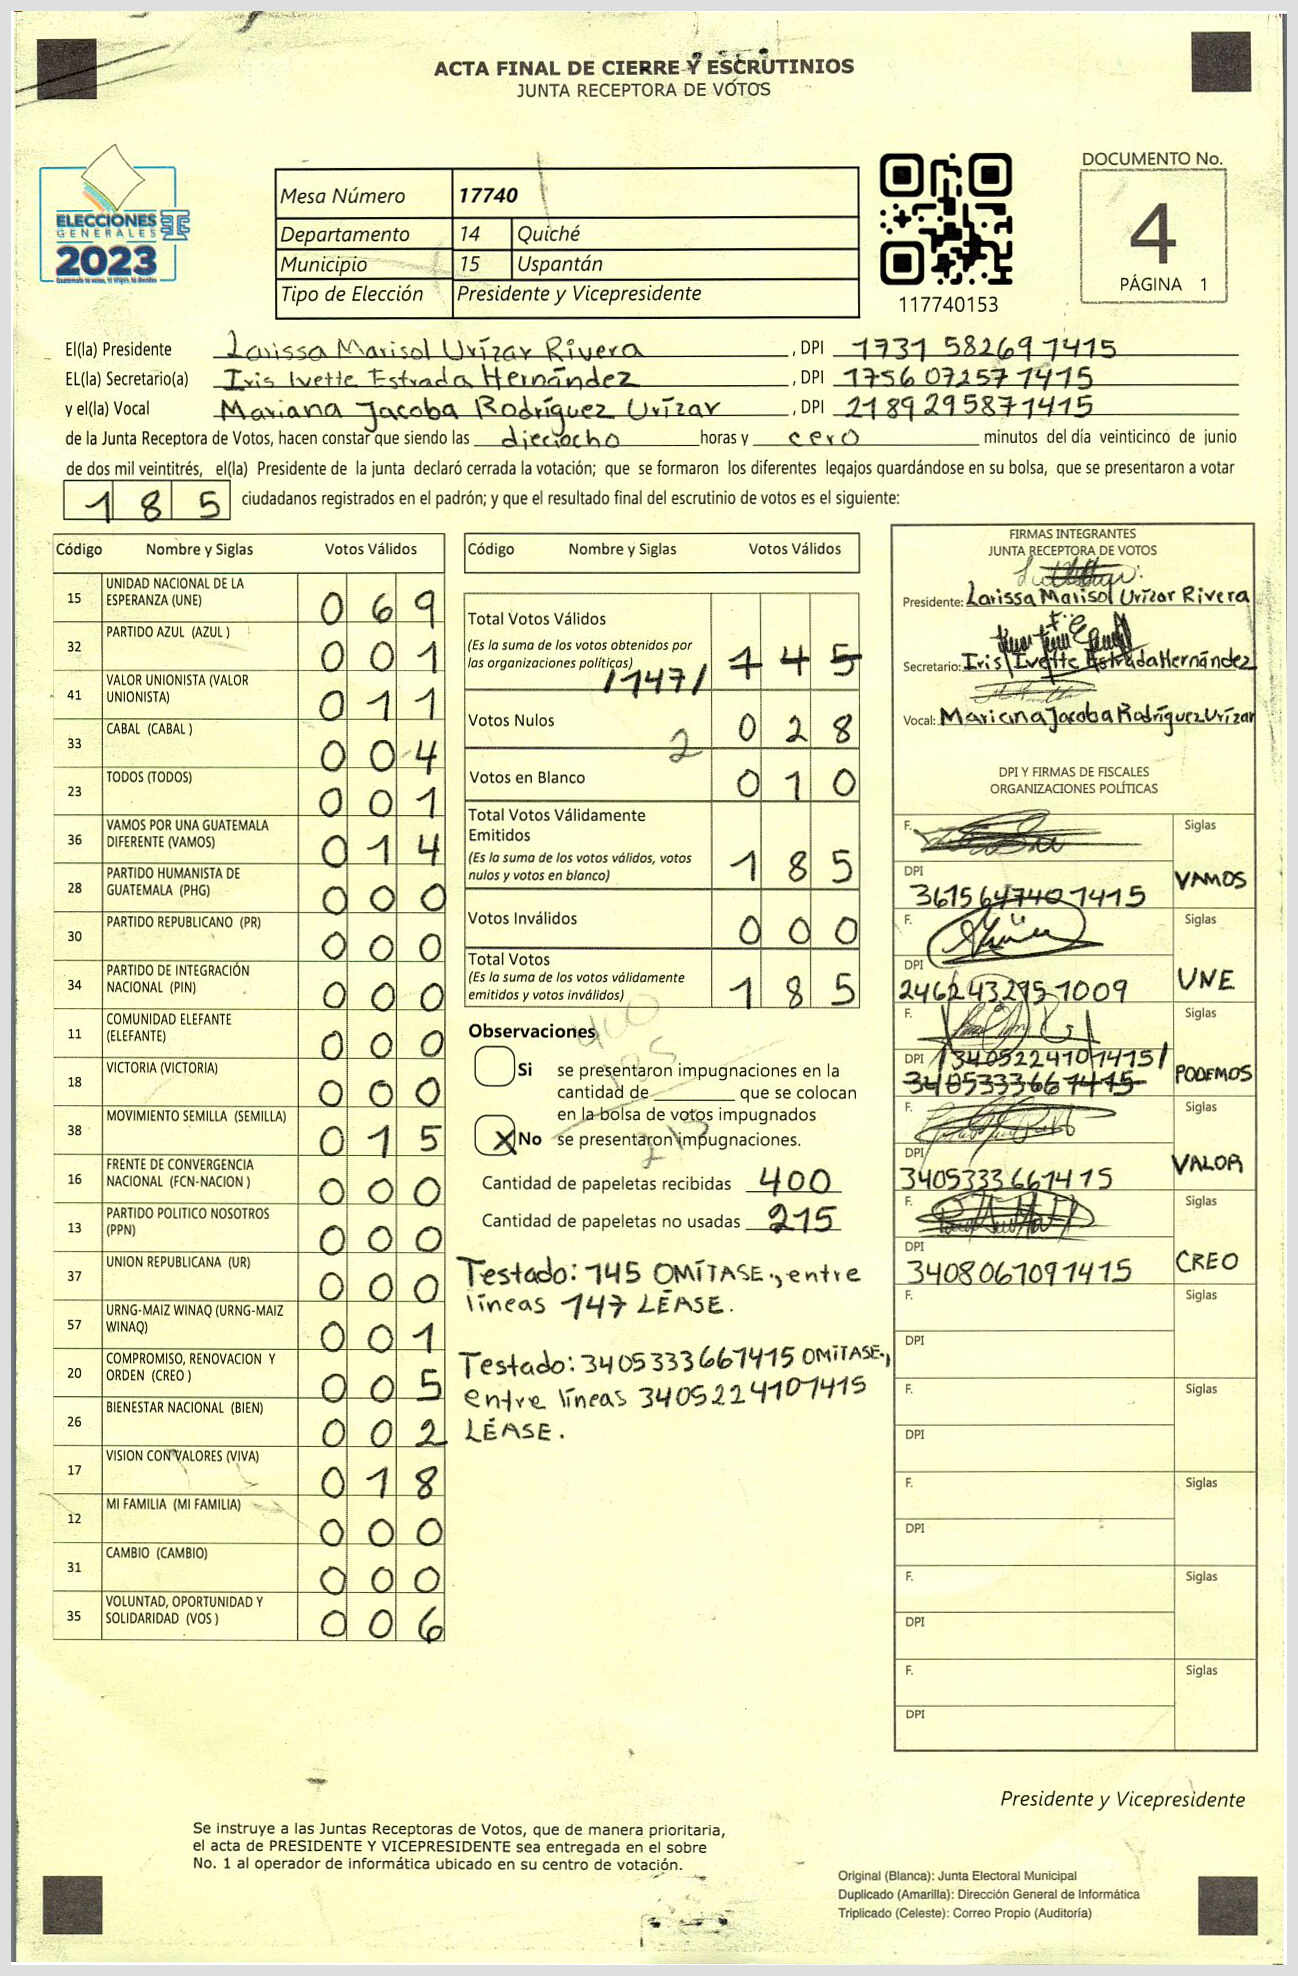 ACTA FINAL DE CIERRE Y ESCRUTINIOS
JUNTA RECEPTORA DE VOTOS
ELECCIONES
GENERALES
2023
Mesa Número 17740
Departamento 14 Quiché
Municipio 15 Uspantán
Tipo de Elección Presidente y Vicepresidente
117740153
DOCUMENTO No.
4
PÁGINA 1
El(la) Presidente Larissa Marisol Urízar Rivera , DPI 1731 58269 1415
EL(la) Secretario(a) Iris Ivette Estrada Hernández , DPI 1756 07257 1415
y el(la) Vocal Mariana Jacoba Rodríguez Urízar , DPI 2189 29587 1415
de la Junta Receptora de Votos, hacen constar que siendo las dieciocho horas y cero minutos del día veinticinco de junio
de dos mil veintitrés, el(la) Presidente de la junta declaró cerrada la votación; que se formaron los diferentes legajos guardándose en su bolsa, que se presentaron a votar
185 ciudadanos registrados en el padrón; y que el resultado final del escrutinio de votos es el siguiente:
Código Nombre y Siglas Votos Válidos
15 UNIDAD NACIONAL DE LA ESPERANZA (UNE) 069
32 PARTIDO AZUL (AZUL ) 001
41 VALOR UNIONISTA (VALOR UNIONISTA) 011
33 CABAL (CABAL ) 004
23 TODOS (TODOS) 001
36 VAMOS POR UNA GUATEMALA DIFERENTE (VAMOS) 014
28 PARTIDO HUMANISTA DE GUATEMALA (PHG) 000
30 PARTIDO REPUBLICANO (PR) 000
34 PARTIDO DE INTEGRACIÓN NACIONAL (PIN) 000
11 COMUNIDAD ELEFANTE (ELEFANTE) 000
18 VICTORIA (VICTORIA) 000
38 MOVIMIENTO SEMILLA (SEMILLA) 015
16 FRENTE DE CONVERGENCIA NACIONAL (FCN-NACION ) 000
13 PARTIDO POLITICO NOSOTROS (PPN) 000
37 UNION REPUBLICANA (UR) 000
57 URNG-MAIZ WINAQ (URNG-MAIZ WINAQ) 001
20 COMPROMISO, RENOVACION Y ORDEN (CREO ) 005
26 BIENESTAR NACIONAL (BIEN) 002
17 VISION CON VALORES (VIVA) 018
12 MI FAMILIA (MI FAMILIA) 000
31 CAMBIO (CAMBIO) 000
35 VOLUNTAD, OPORTUNIDAD Y SOLIDARIDAD (VOS ) 006
Código Nombre y Siglas Votos Válidos
Total Votos Válidos
(Es la suma de los votos obtenidos por
las organizaciones políticas) /147/ 145
Votos Nulos 028
2
Votos en Blanco 010
Total Votos Válidamente
Emitidos
(Es la suma de los votos válidos, votos
nulos y votos en blanco) 185
Votos Inválidos 000
Total Votos
(Es la suma de los votos válidamente
emitidos y votos inválidos) 185
Observaciones
400
185
215
Si se presentaron impugnaciones en la
cantidad de ________ que se colocan
en la bolsa de votos impugnados
X No se presentaron impugnaciones.
Cantidad de papeletas recibidas 400
Cantidad de papeletas no usadas 215
Testado: 145 OMÍTASE., entre
líneas 147 LÉASE.
Testado: 3405333661415 OMITASE.,
entre líneas 3405224101415
LÉASE.
FIRMAS INTEGRANTES
JUNTA RECEPTORA DE VOTOS
Presidente: Larissa Marisol Urízar Rivera
Secretario: Iris Ivette Estrada Hernández
Vocal: Mariana Jacoba Rodríguez Urízar
DPI Y FIRMAS DE FISCALES
ORGANIZACIONES POLÍTICAS
F. Siglas
DPI 3615647401415 VAMOS
F. Siglas
DPI 2462432951009 UNE
F. Siglas
DPI /3405224101415/
3405333661415 PODEMOS
F. Siglas
DPI 3405333661415 VALOR
F. Siglas
DPI 3408061091415 CREO
F. Siglas
DPI
F. Siglas
DPI
F. Siglas
DPI
F. Siglas
DPI
F. Siglas
DPI
Presidente y Vicepresidente
Se instruye a las Juntas Receptoras de Votos, que de manera prioritaria,
el acta de PRESIDENTE Y VICEPRESIDENTE sea entregada en el sobre
No. 1 al operador de informática ubicado en su centro de votación.
Original (Blanca): Junta Electoral Municipal
Duplicado (Amarilla): Dirección General de Informática
Triplicado (Celeste): Correo Propio (Auditoría)